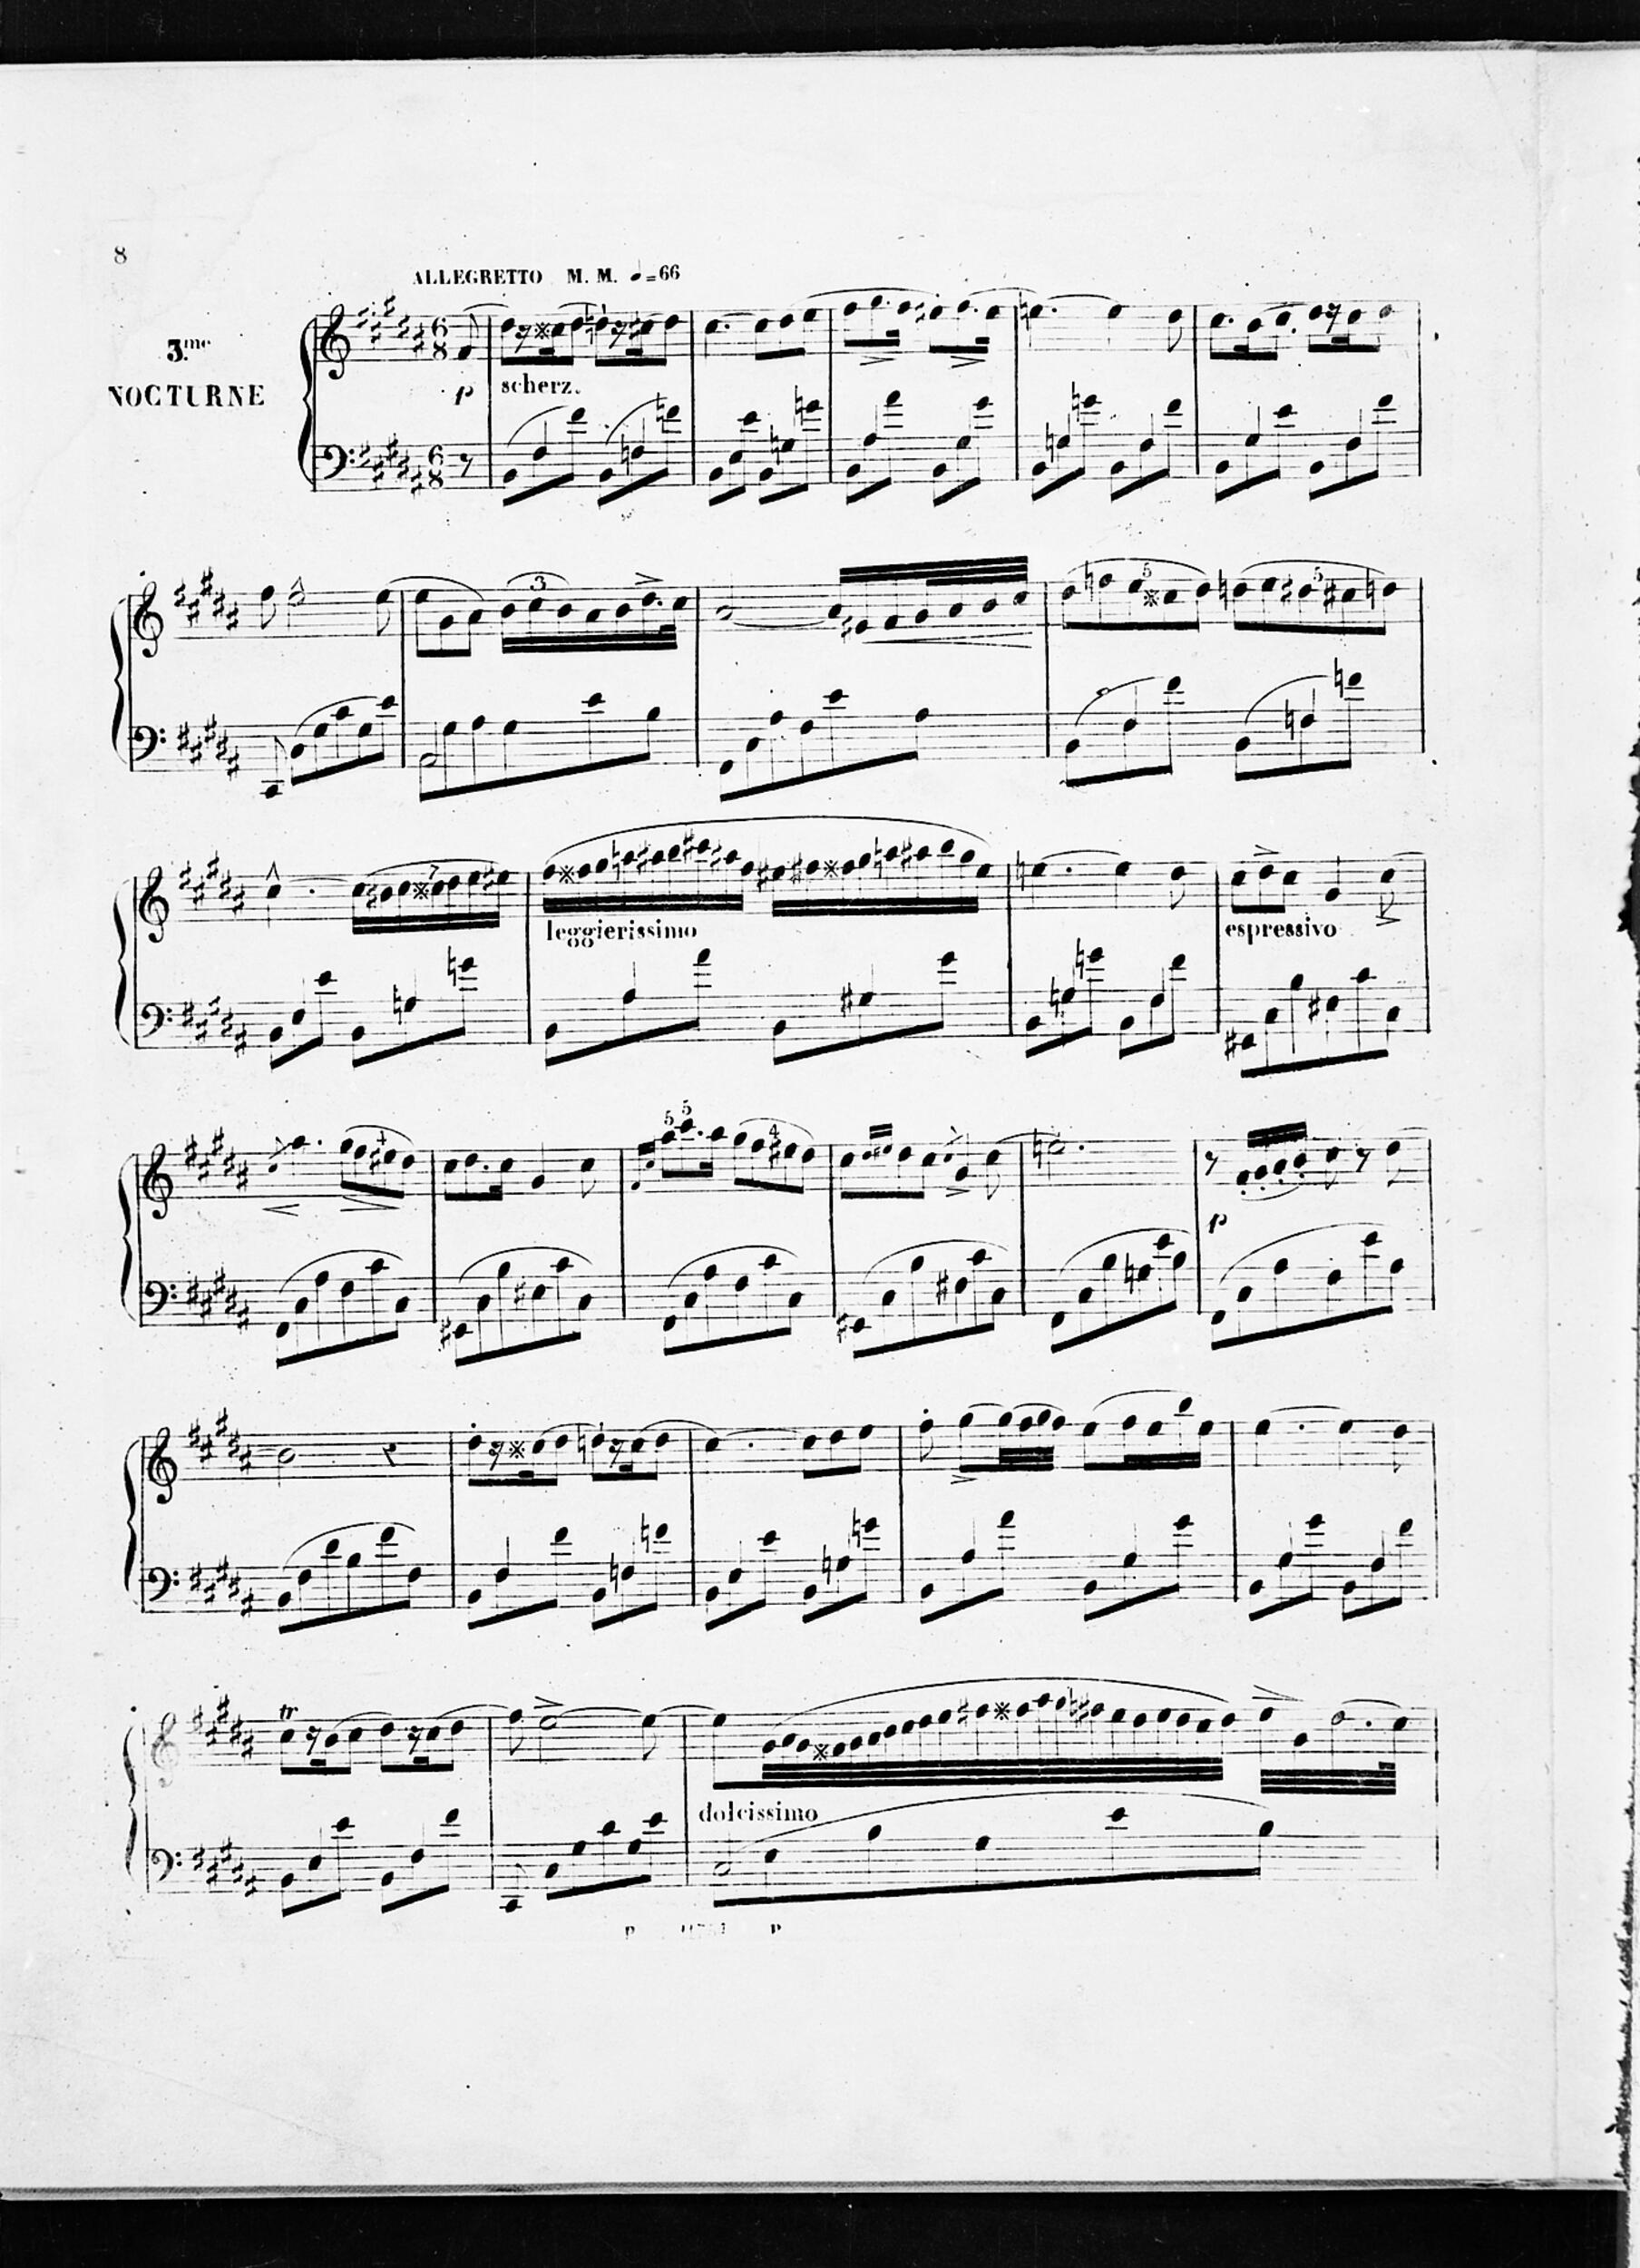 8
ALLEGRETTO M. M. 𝅗𝅥=66
3.me
NOCTURNE
6 8
p scherz.
6 8
3 5 5
7
leggierissimo espressivo
4 5 5 4
p
tr
dolcissimo